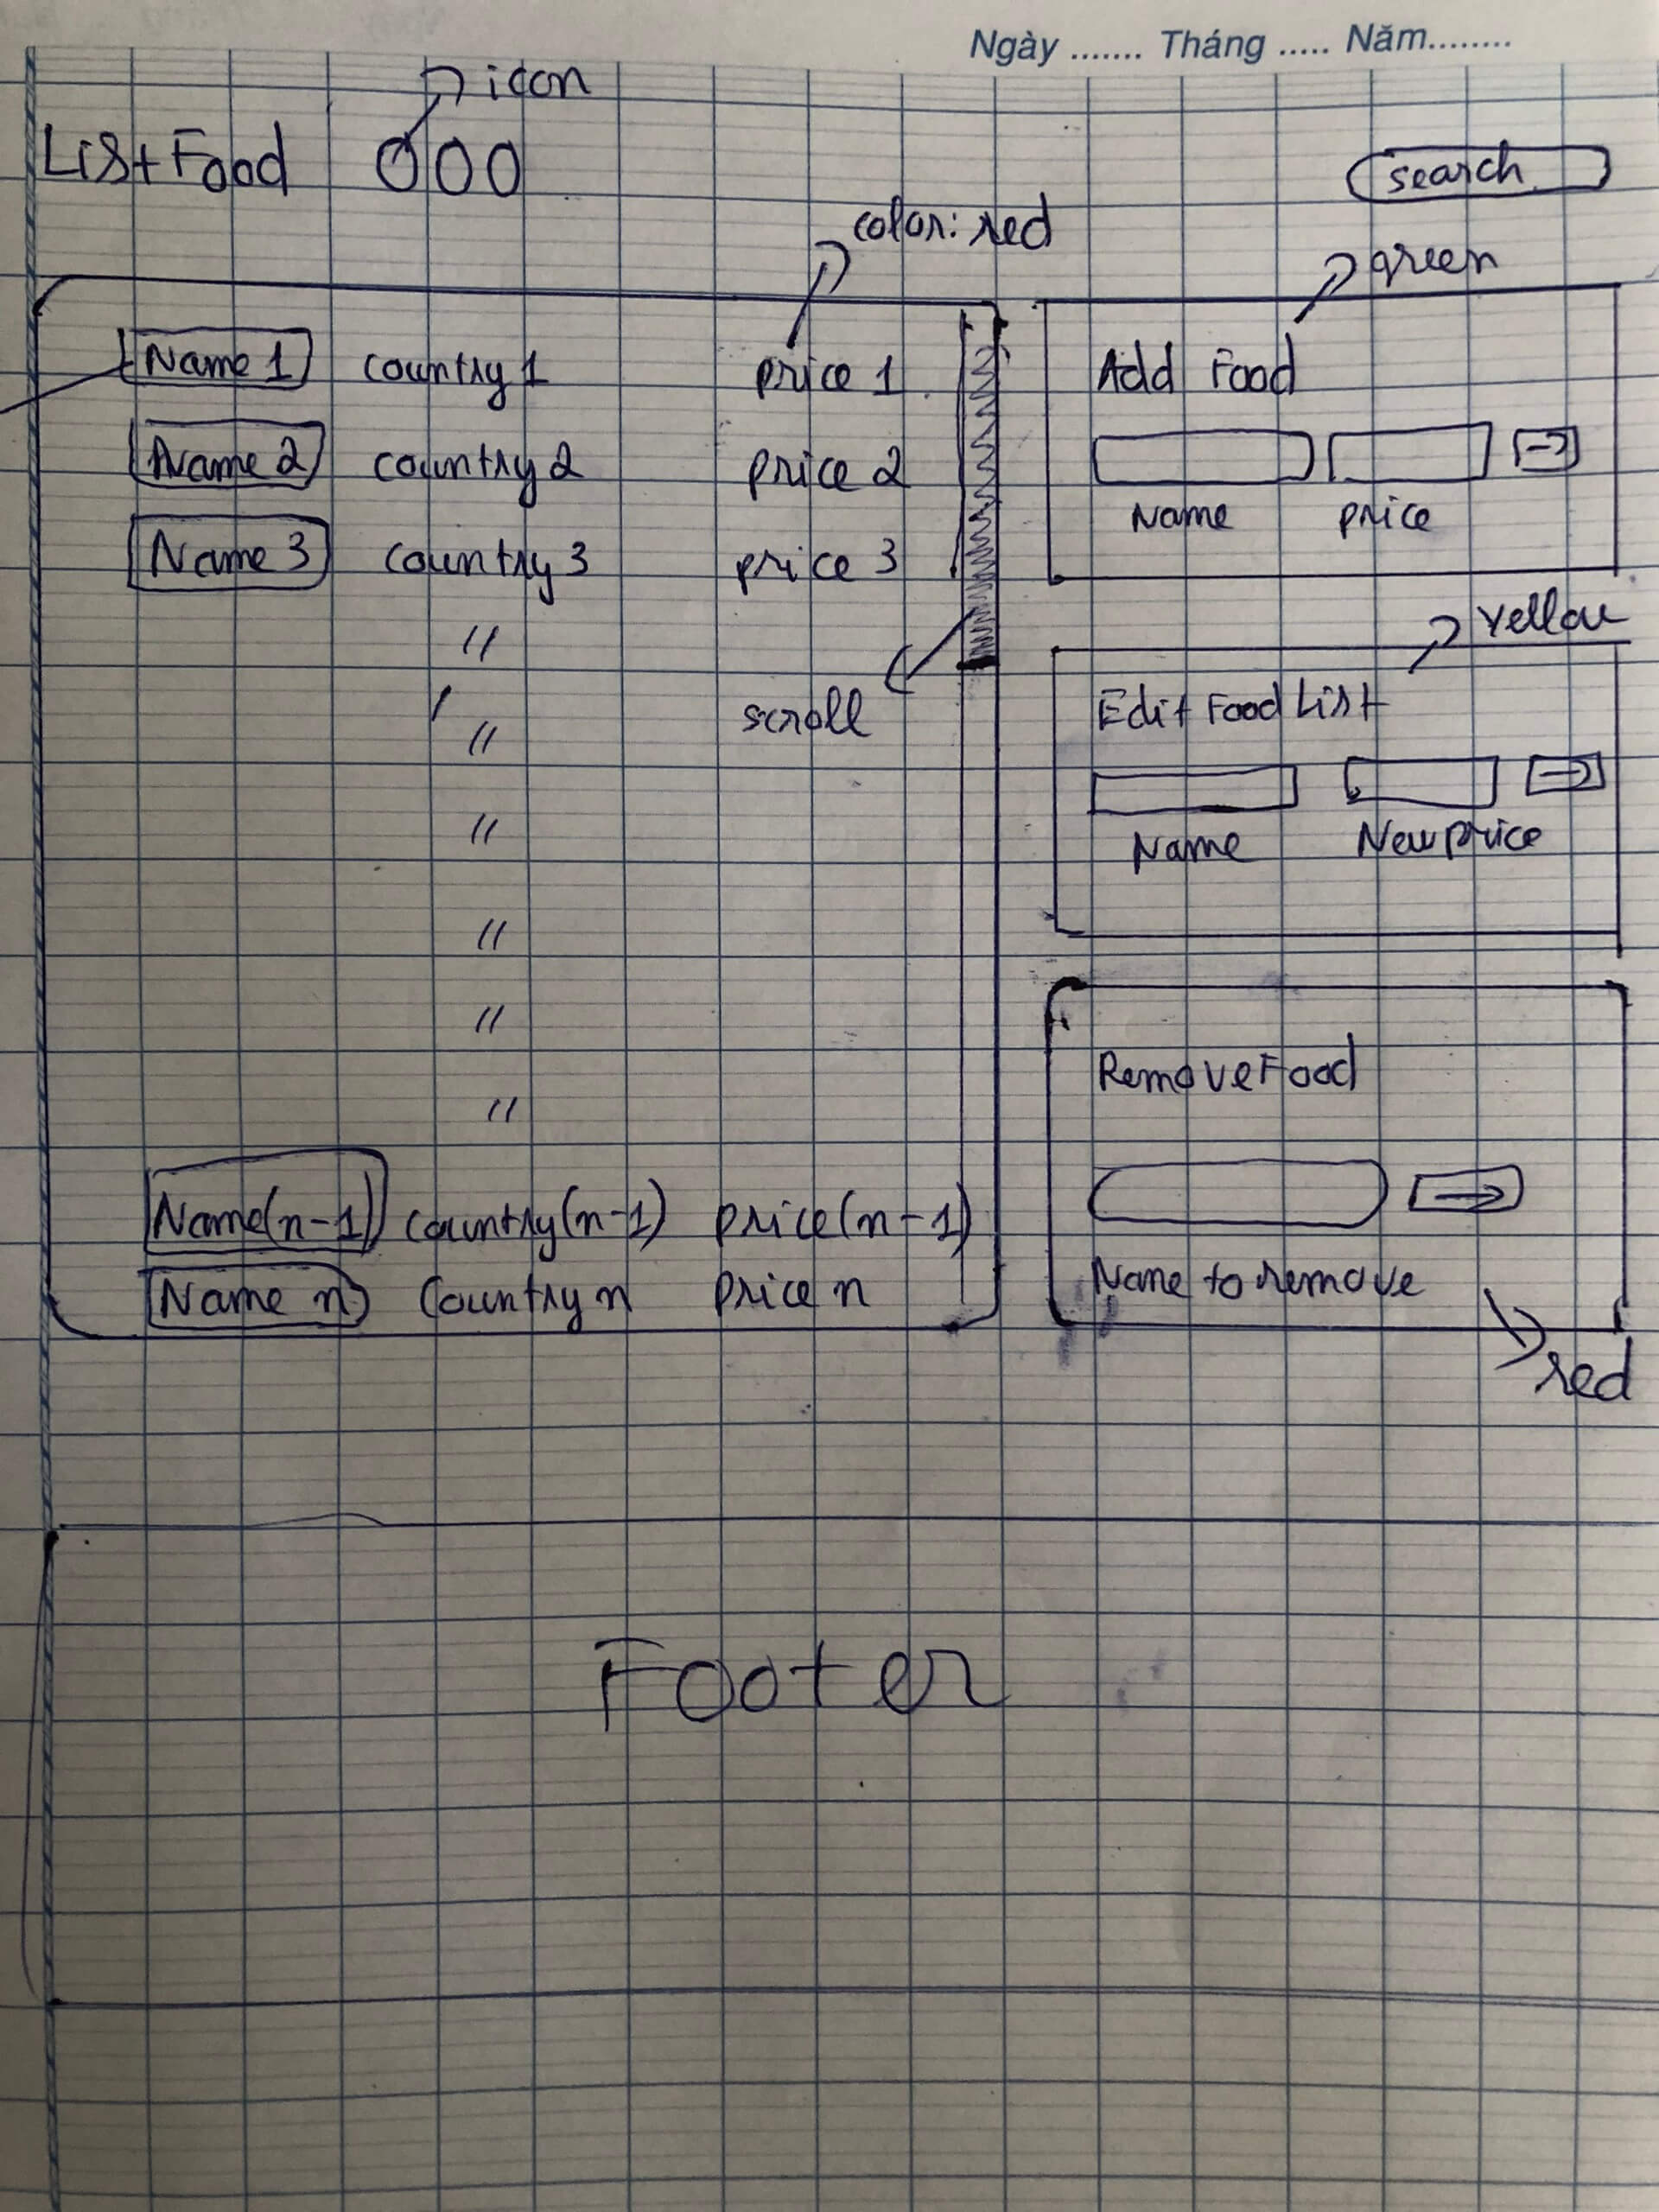 Ngày ....... Tháng ..... Năm........
icon
List Food
search
color: red
green
Name 1 country 1 price 1
Name 2 country 2 price 2
Name 3 country 3 price 3
"
"
"
"
"
"
scroll
Name(n-1) country(n-1) price(n-1)
Name n Country n Price n
Add Food
Name price
Yellow
Edit Food List
Name New price
Remove Food
Name to remove
red
Footer